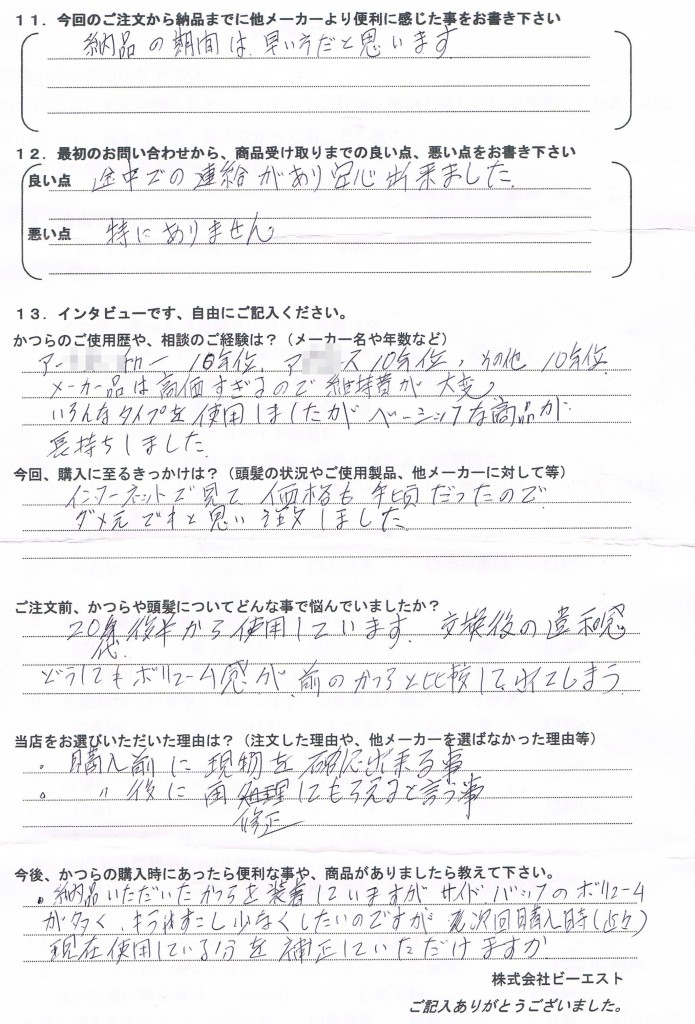 １１．今回のご注文から納品までに他メーカーより便利に感じた事をお書き下さい
納品の期間は早い方だと思います
１２．最初のお問い合わせから、商品受け取りまでの良い点、悪い点をお書き下さい
良い点 途中での連絡があり安心出来ました
悪い点 特にありません
１３．インタビューです、自由にご記入ください。
かつらのご使用歴や、相談のご経験は？（メーカー名や年数など）
アー 10年位、ア ス10年位、その他 10年位
メーカー品は高価すぎるので維持費が大変。
いろんなタイプを使用しましたがベーシックな商品が
長持ちしました
今回、購入に至るきっかけは？（頭髪の状況やご使用製品、他メーカーに対して等）
インターネットで見て価格も手頃だったので
ダメ元でもと思い注文しました
ご注文前、かつらや頭髪についてどんな事で悩んでいましたか？
20代後半から使用しています。交換後の違和感
どうしてもボリューム感が前のかつらと比較して出てしまう
当店をお選びいただいた理由は？（注文した理由や、他メーカーを選ばなかった理由等）
・購入前に現物を確認出来る事
・〃後に再修正してもらえると言う事
今後、かつらの購入時にあったら便利な事や、商品がありましたら教えて下さい。
・納品いただいたかつらを装着していますがサイド、バックのボリューム
が多く、もう少し少なくしたいのですが 次回購入時（近々）
現在使用している分を補正していただけますか
株式会社ビーエスト
ご記入ありがとうございました。